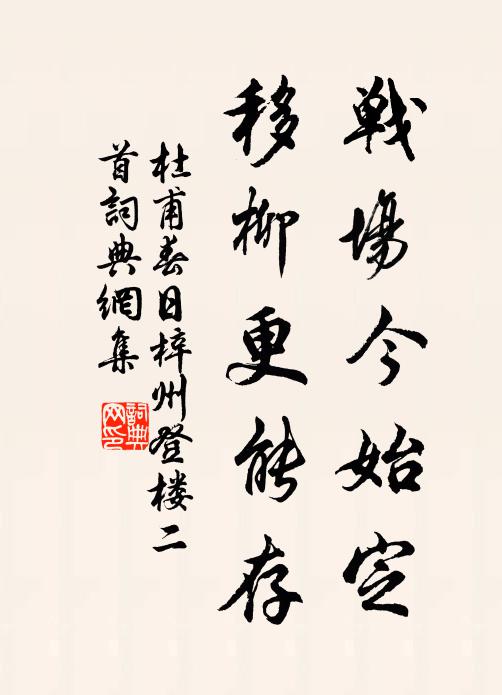 戦場今始定
移柳更能存
杜甫春日梓州登楼二
首詞典網集
詞典
网印